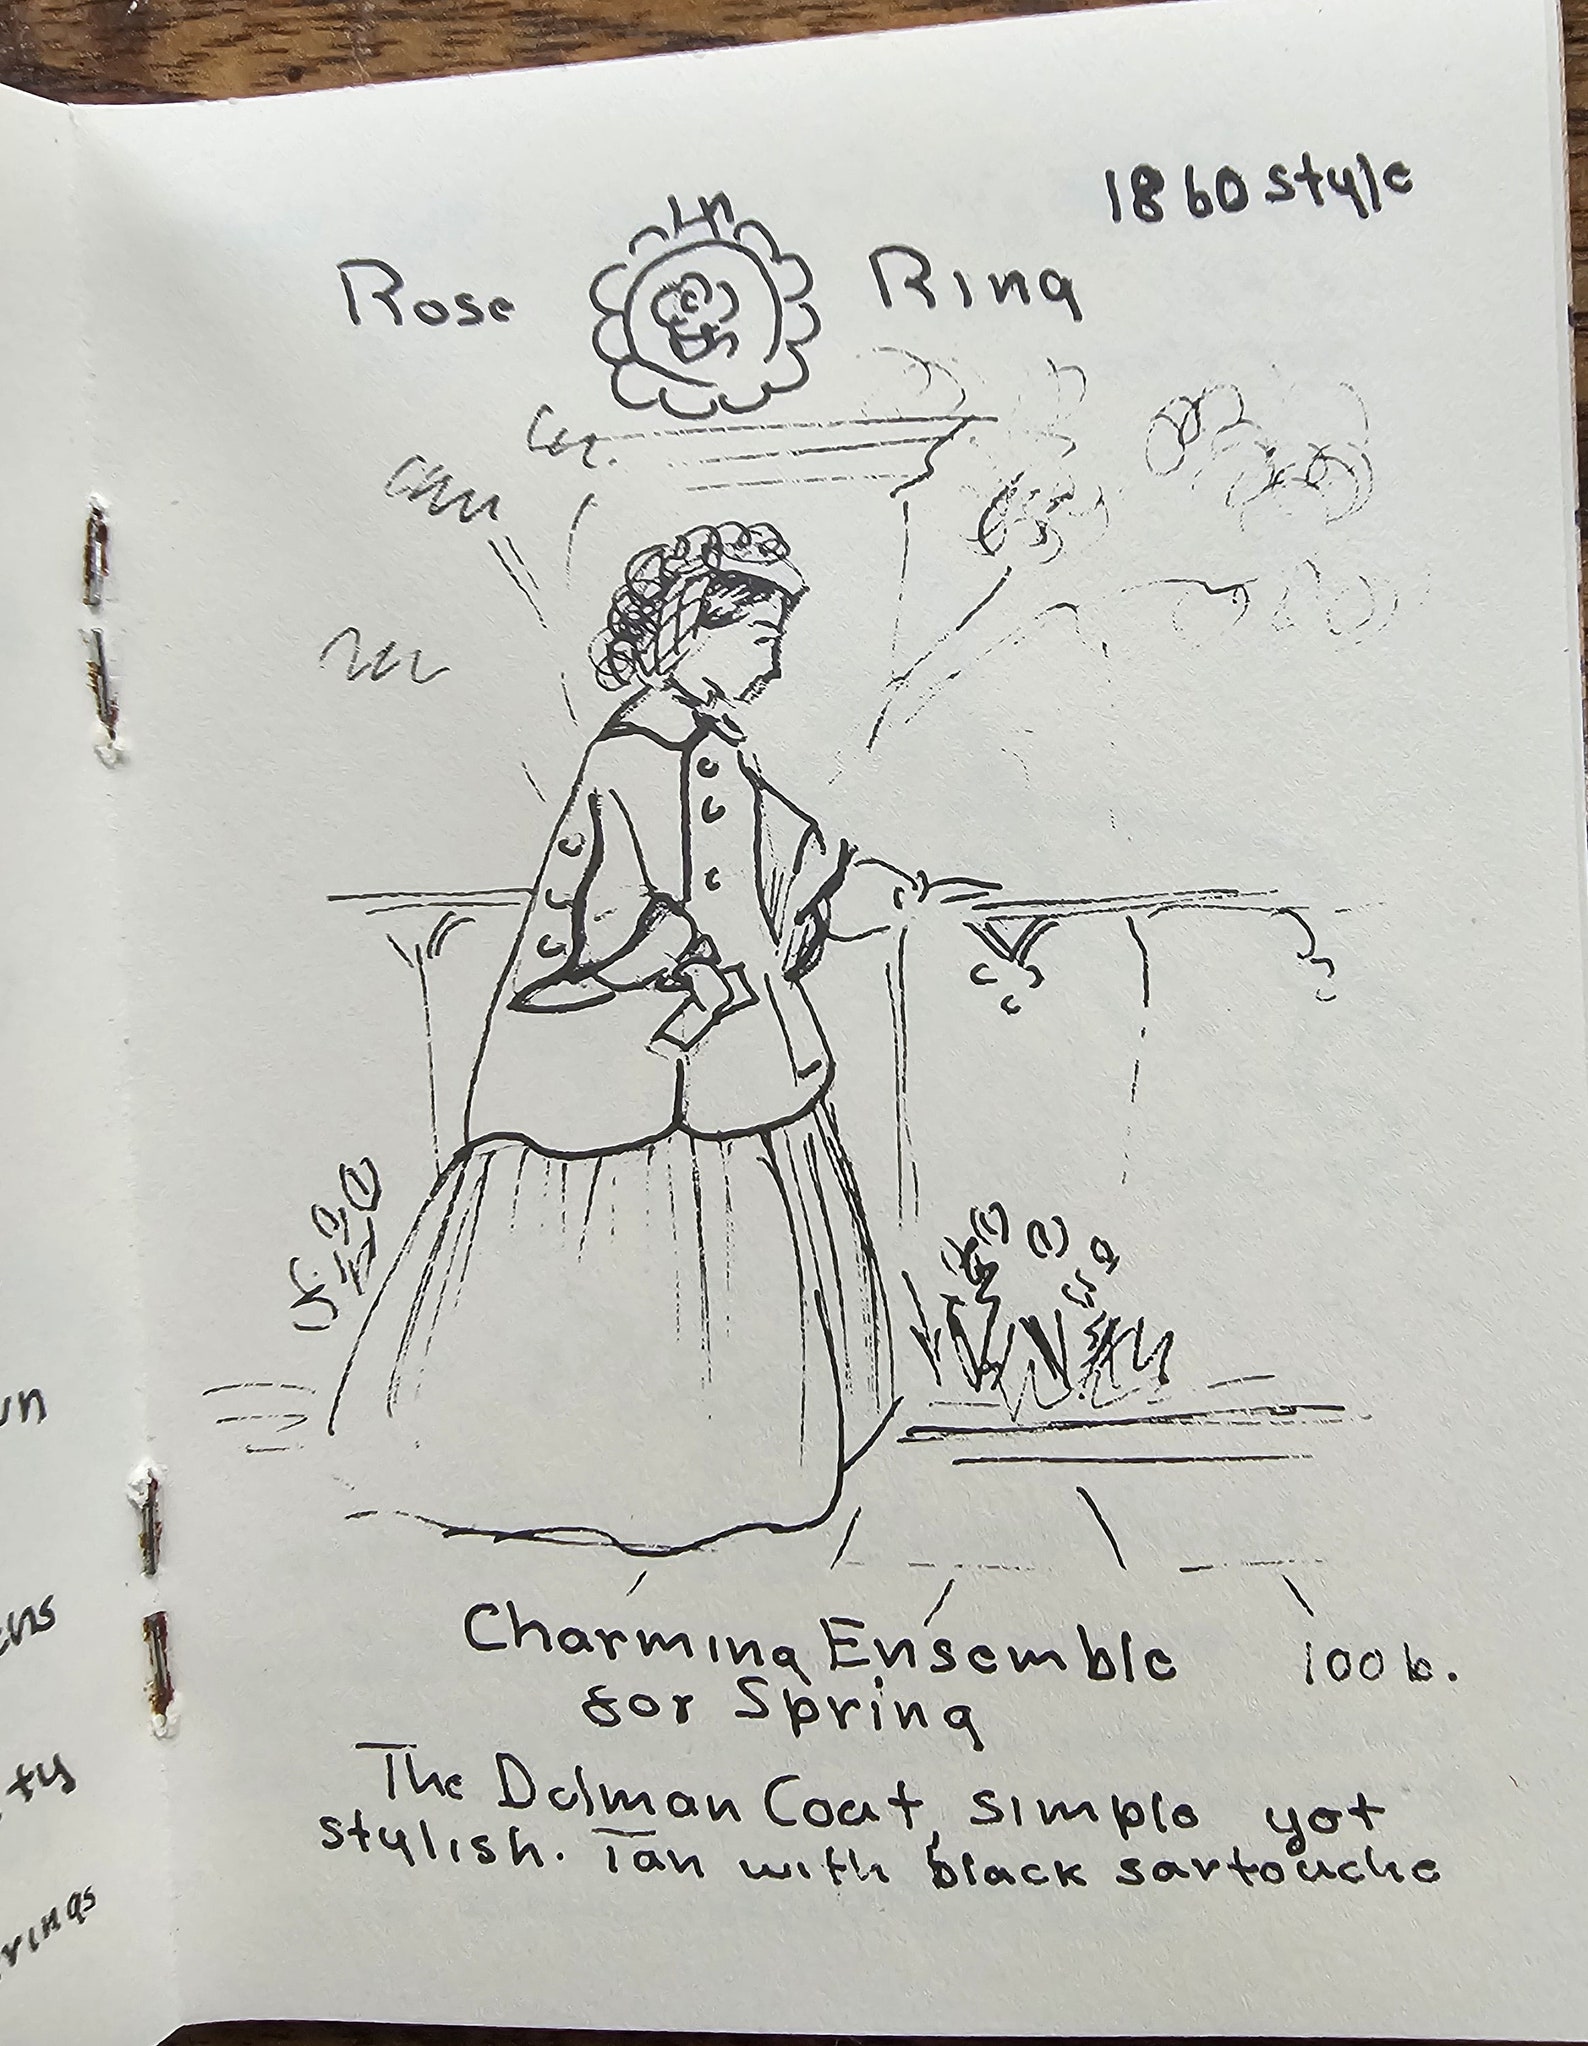 1860 style
In
Rose Ring
Charming Ensemble
for Spring
100 b.
The Dolman Coat, simple yet
stylish. Tan with black sartouche
un
ens
ty
rings